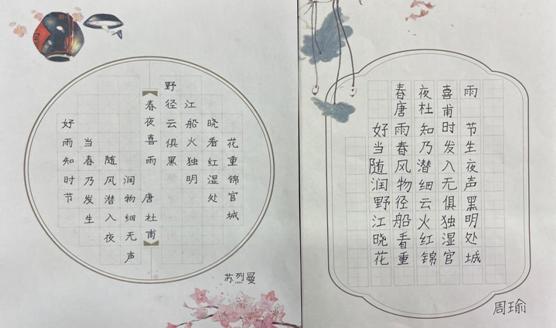 好雨知时节
当春乃发生
随风潜入夜
润物细无声
【春夜喜雨 唐 杜甫】
野径云俱黑
江船火独明
晓看红湿处
花重锦官城
苏烈曼
春夜喜雨
唐杜甫
好雨知时节
当春乃发生
随风潜入夜
润物细无声
野径云俱黑
江船火独明
晓看红湿处
花重锦官城
周瑜